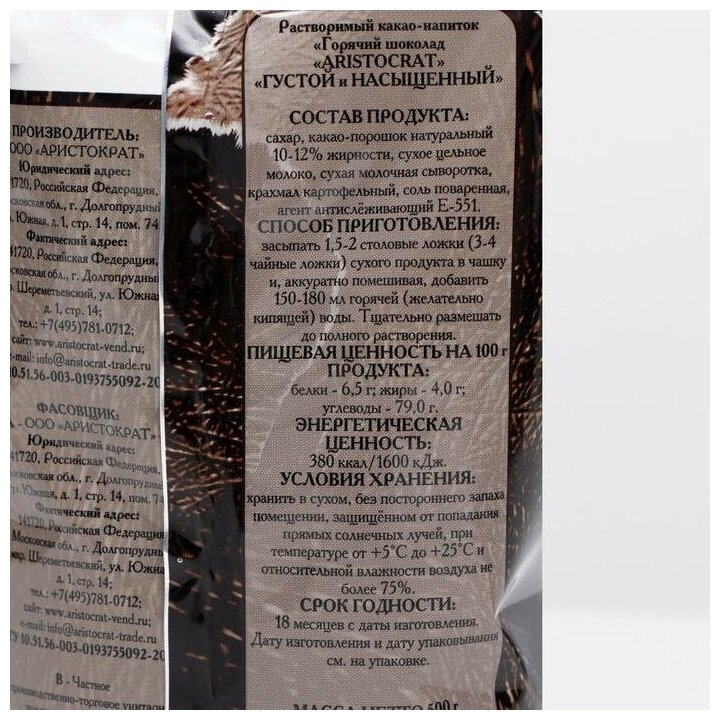 ПРОИЗВОДИТЕЛЬ:
ООО «АРИСТОКРАТ»
Юридический адрес:
41720, Российская Федерация,
московская обл., г. Долгопрудный
Южная, д. 1, стр. 14, пом. 74
Фактический адрес:
141720, Российская Федерация,
Московская обл., г. Долгопрудны
р. Шереметьевский, ул. Южна
д. 1, стр. 14;
тел.: +7(495)781-0712;
сайт: www.aristocrat-vend.ru;
e-mail: info@aristocrat-trade.ru
10.51.56-003-0193755092-20
ФАСОВЩИК:
- ООО «АРИСТОКРАТ»
Юридический адрес:
41720, Российская Федерация,
московская обл., г. Долгопрудный
ул. Южная, д. 1, стр. 14, пом. 74
Фактический адрес:
141720, Российская Федерация
Московская обл., г. Долгопрудны
мкр. Шереметьевский, ул. Южна
д. 1, стр. 14;
тел.: +7(495)781-0712;
сайт: www.aristocrat-vend.ru;
e-mail: info@aristocrat-trade.ru
ТУ 10.51.56-003-0193755092-20
В - Частное
производственно-торговое унитарн
Растворимый какао-напиток
«Горячий шоколад
«ARISTOCRAT»
«ГУСТОЙ и НАСЫЩЕННЫЙ»
СОСТАВ ПРОДУКТА:
сахар, какао-порошок натуральный
10-12% жирности, сухое цельное
молоко, сухая молочная сыворотка,
крахмал картофельный, соль поваренная,
агент антислёживающий Е-551.
СПОСОБ ПРИГОТОВЛЕНИЯ:
засыпать 1,5-2 столовые ложки (3-4
чайные ложки) сухого продукта в чашку
и, аккуратно помешивая, добавить
150-180 мл горячей (желательно
кипящей) воды. Тщательно размешать
до полного растворения.
ПИЩЕВАЯ ЦЕННОСТЬ НА 100 г
ПРОДУКТА:
белки - 6,5 г; жиры - 4,0 г;
углеводы - 79,0 г.
ЭНЕРГЕТИЧЕСКАЯ
ЦЕННОСТЬ:
380 ккал/1600 кДж.
УСЛОВИЯ ХРАНЕНИЯ:
хранить в сухом, без постороннего запаха
помещении, защищённом от попадания
прямых солнечных лучей, при
температуре от +5°С до +25°С и
относительной влажности воздуха не
более 75%.
СРОК ГОДНОСТИ:
18 месяцев с даты изготовления.
Дату изготовления и дату упаковывания
см. на упаковке.
МАССА НЕТТО 500 г